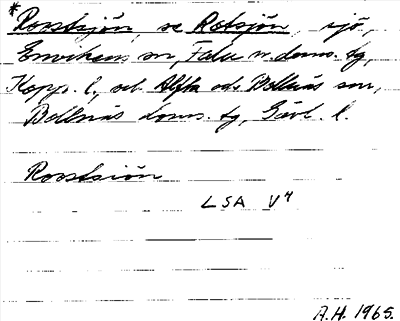 *Rosstsjön, se Rotsjön, sjö,
Envikens sn, Falu n. doms. tg,
Kopp. l., och Alfta och Bollnäs snr,
Bollnäs doms. tg, Gävl. l.
Rosstsiön
LSA V4
A.H. 1965.